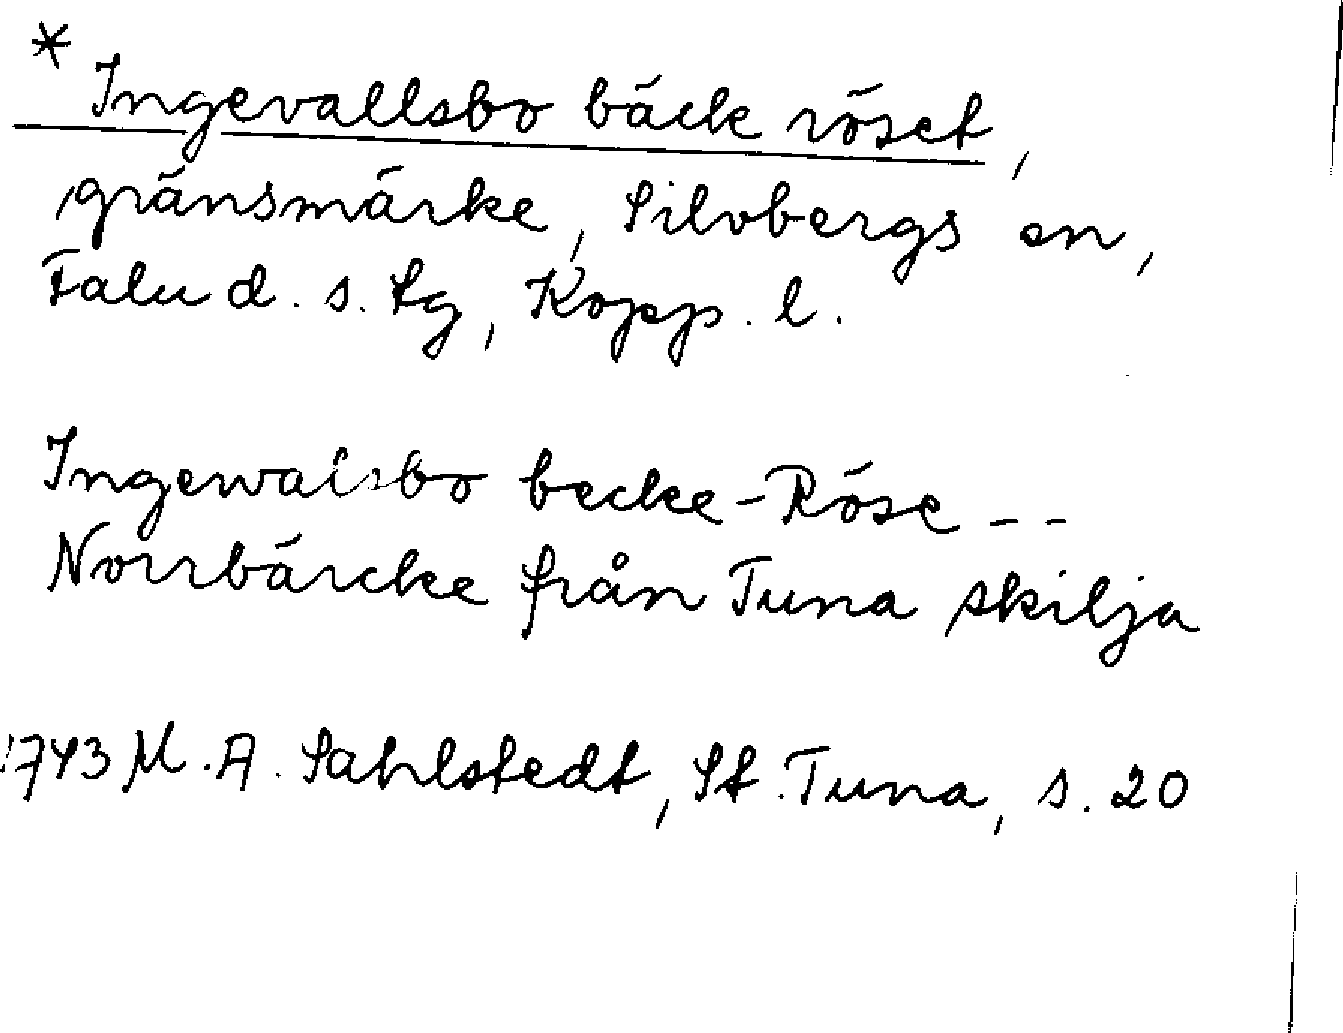 * Ingevallsbo bäck röset,
gränsmärke, Silvbergs sn,
Falu d. s. tg, Kopp. l.
Ingewalsbo becke-Röse - -
Norrbärcke från Tuna skilja
1743 M. A. Sahlstedt, St. Tuna, s. 20